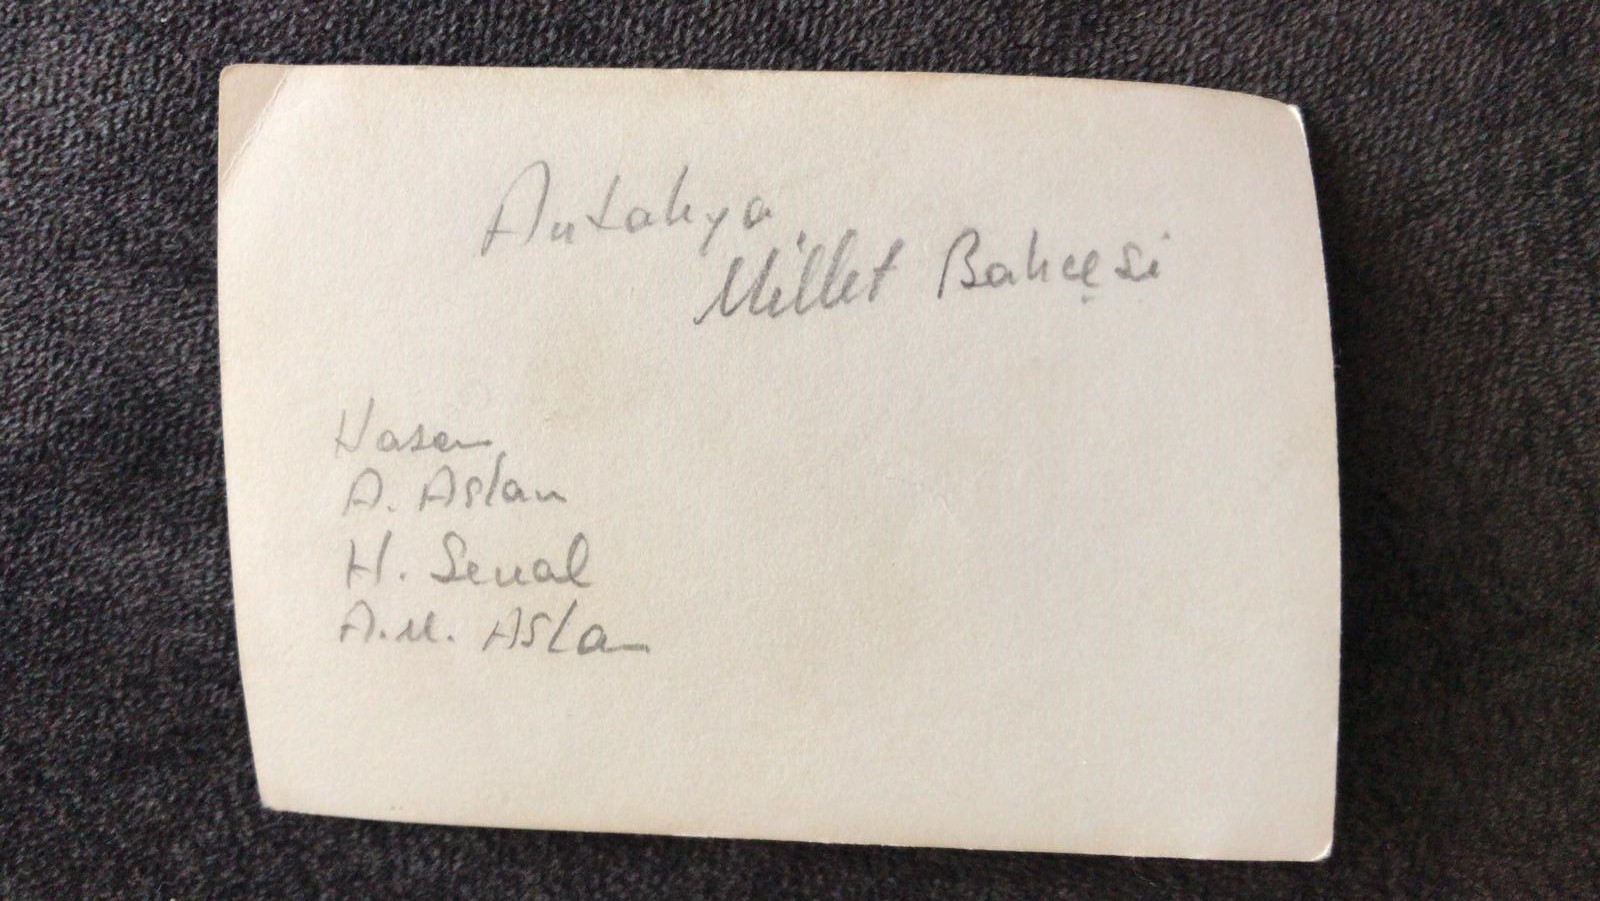 Antakya
Millet Bahçesi
Hasan
A. Aslan
H. Senal
A.M. Aslan